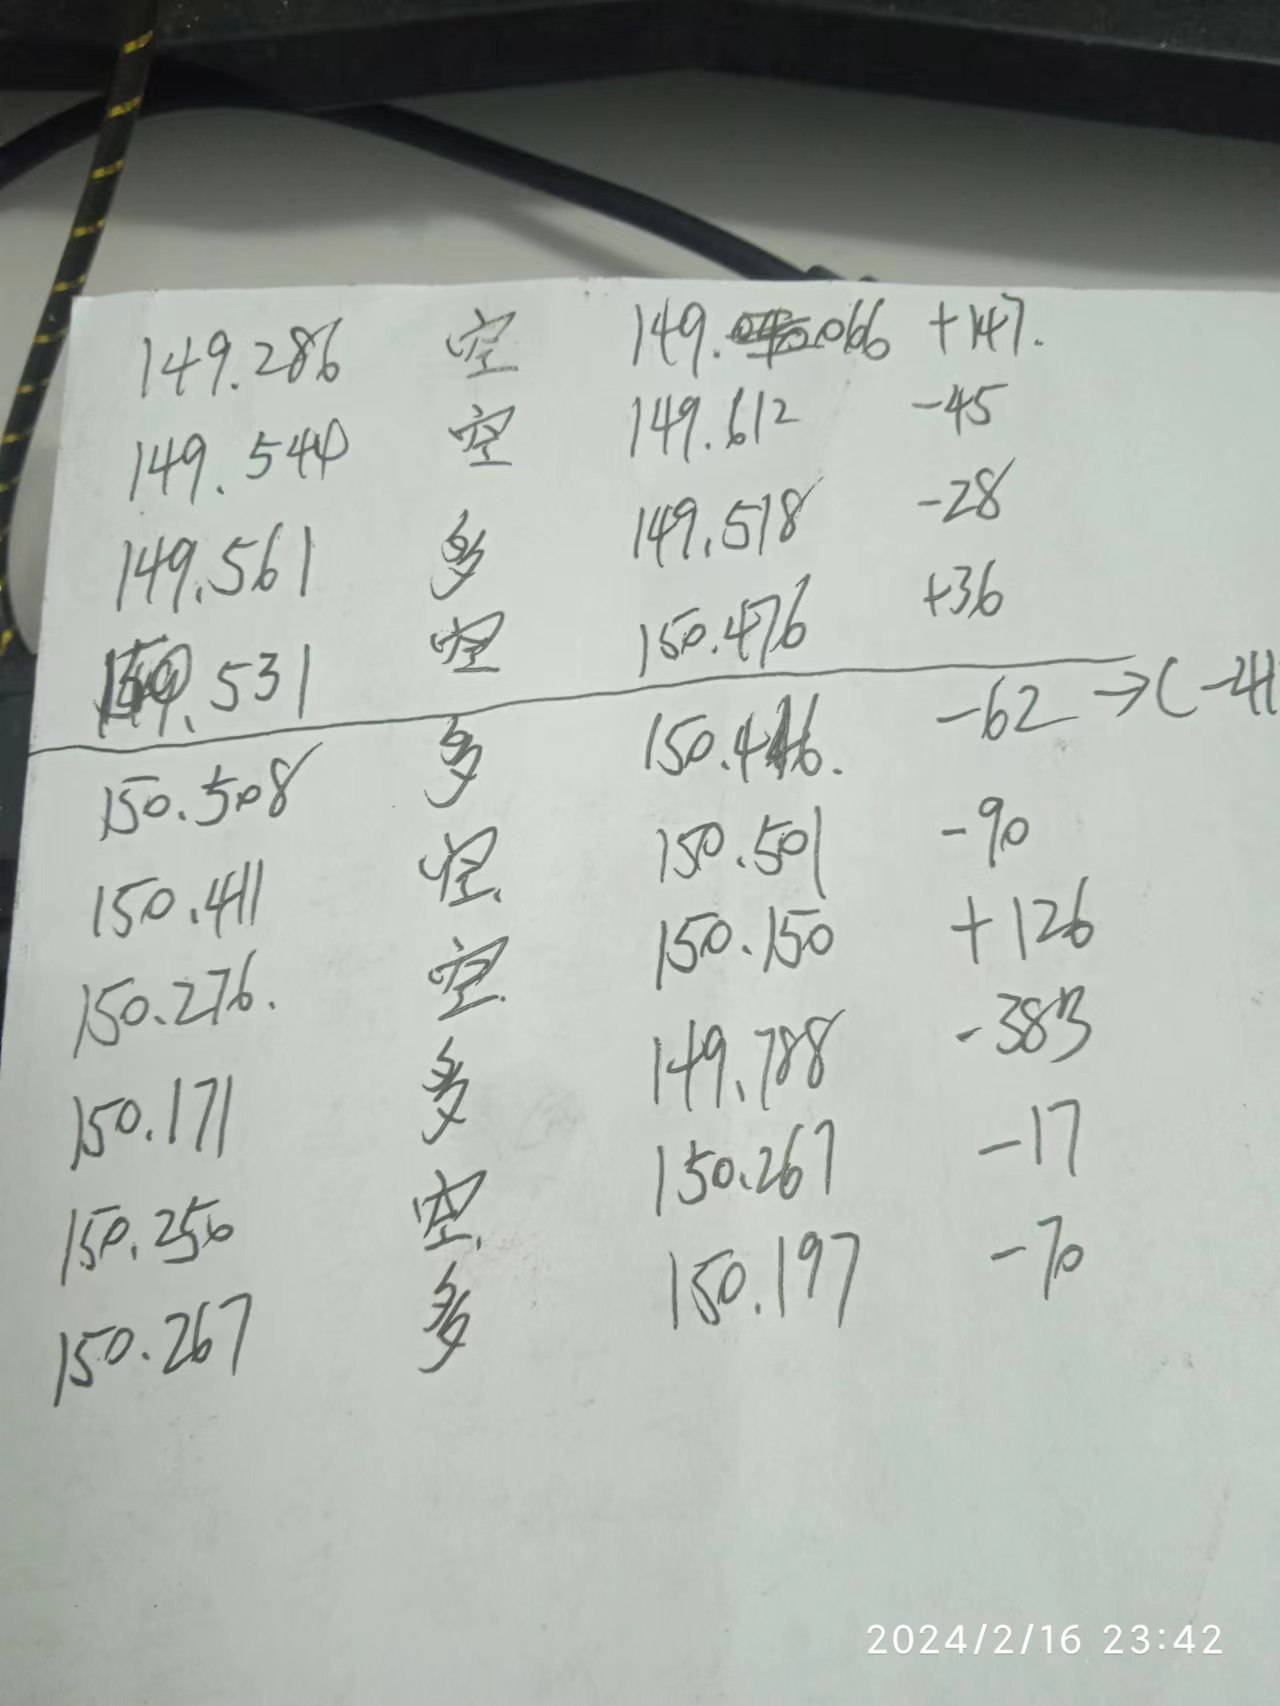 149.286 空 149.066 +147.
149.540 空 149.612 -45
149.561 多 149.518 -28
150.531 空 150.476 +36
150.508 多 150.446. -62 → (-41
150.411 空. 150.501 -90
150.276. 空. 150.150 +126
150.171 多 149.788 -383
150.250 空. 150.267 -17
150.267 多 150.197 -70
2024/2/16 23:42